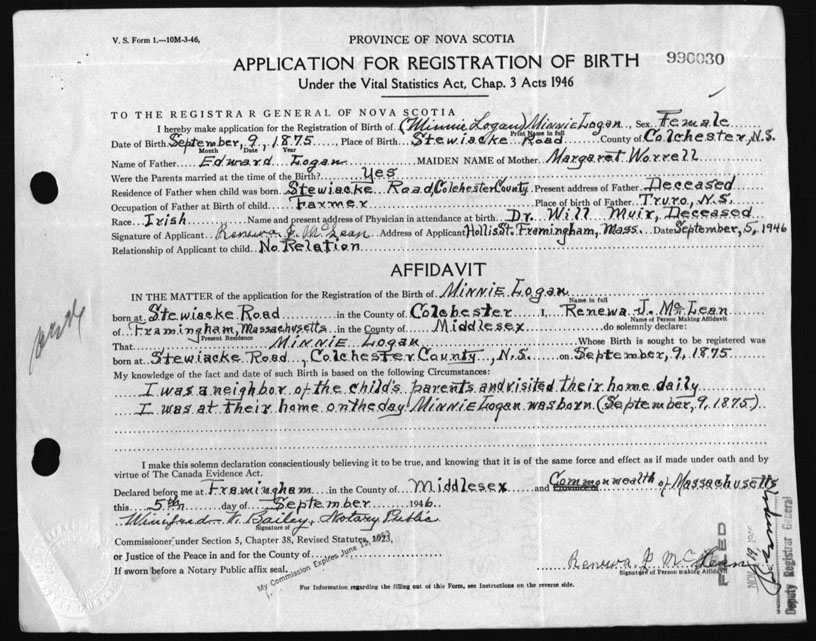 V. S. Form 1.—10M-3-46,
PROVINCE OF NOVA SCOTIA
APPLICATION FOR REGISTRATION OF BIRTH
990030
Under the Vital Statistics Act, Chap. 3 Acts 1946
TO THE REGISTRAR GENERAL OF NOVA SCOTIA
I hereby make application for the Registration of Birth of (Minnie Logan) MINNIE Logan, Sex Female
Print Name in full
Date of Birth September, 9, 1875, Place of Birth Stewiacke Road County of Colchester, N.S.
Month Date Year
Name of Father Edward Logan MAIDEN NAME of Mother Margaret Worrell
Were the Parents married at the time of the Birth? Yes
Residence of Father when child was born Stewiacke Road, Colchester County Present address of Father Deceased
Occupation of Father at Birth of child Farmer Place of birth of Father Truro, N.S.
Race Irish Name and present address of Physician in attendance at birth Dr. Will Muir, Deceased
Signature of Applicant Renewa J. McLean Address of Applicant Hollis St. Framingham, Mass. Date September, 5, 1946
Relationship of Applicant to child No Relation
AFFIDAVIT
IN THE MATTER of the application for the Registration of the Birth of MINNIE Logan
Name in full
born at Stewiacke Road in the County of Colchester I, Renewa J. McLean
Name of Person Making Affidavit
of Framingham, Massachusetts in the County of Middlesex do solemnly declare:
Present Residence
That MINNIE Logan Whose Birth is sought to be registered was
born at Stewiacke Road, Colchester County, N.S. on September, 9, 1875.
My knowledge of the fact and date of such Birth is based on the following Circumstances:
I was a neighbor of the child's parents and visited their home daily
I was at their home on the day MINNIE Logan was born (September, 9, 1875)
I make this solemn declaration conscientiously believing it to be true, and knowing that it is of the same force and effect as if made under oath and by
virtue of The Canada Evidence Act.
Declared before me at Framingham in the County of Middlesex and Commonwealth of Massachusetts
this 5th day of September 1946
Winifred V. Bailey, Notary Public
Signature of
Commissioner under Section 5, Chapter 38, Revised Statutes, 1923,
or Justice of the Peace in and for the County of
If sworn before a Notary Public affix seal.
My Commission Expires June 15, 1953
Renewa J. McLean
Signature of Person making Affidavit
For Information regarding the filling out of this Form, see Instructions on the reverse side.
FILED
NOV 19
Deputy Registrar General